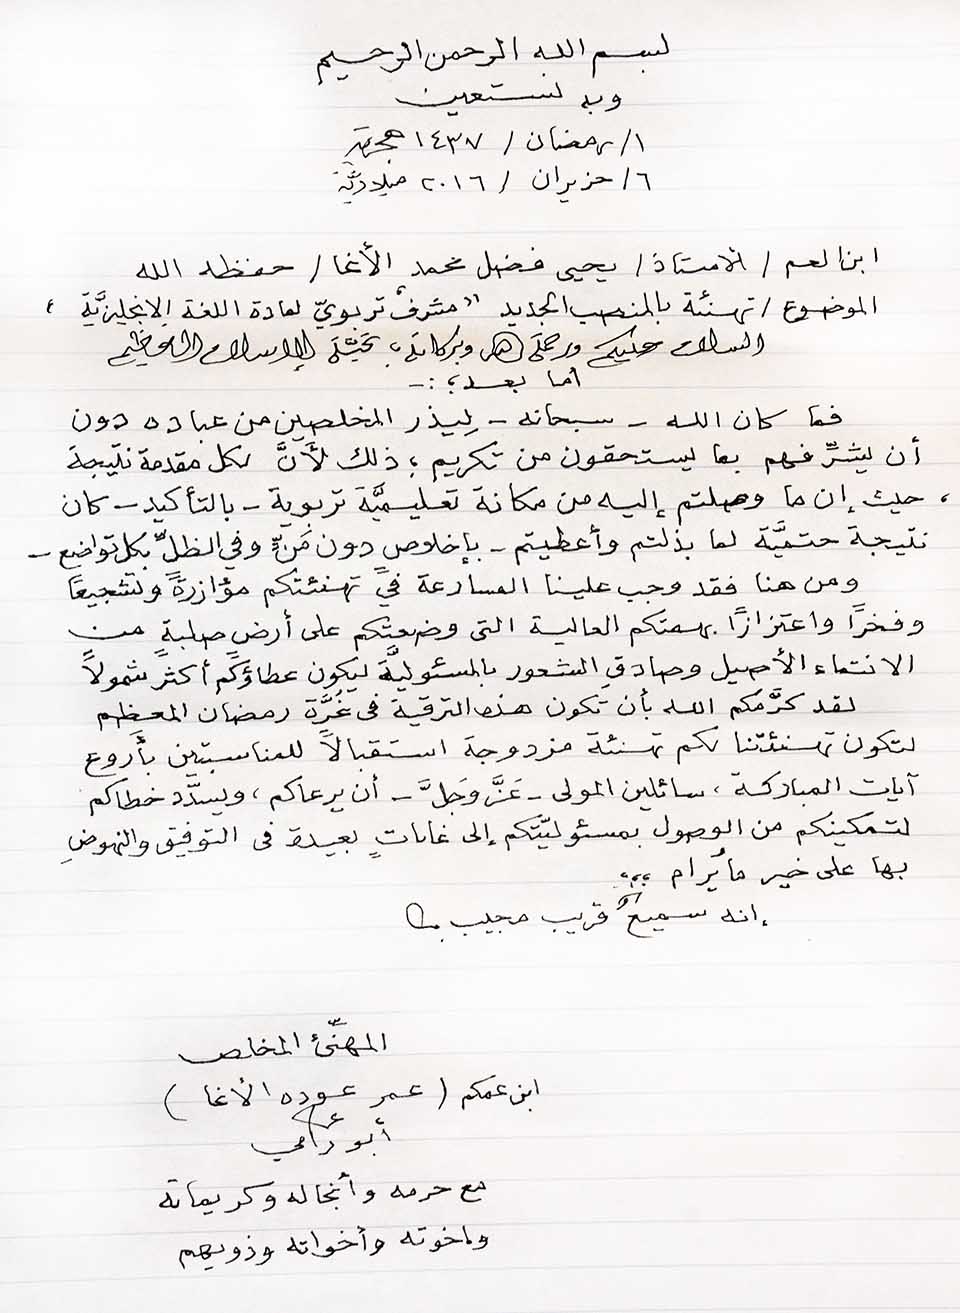 بسم الله الرحمن الرحيم
وبه نستعين
١/ رمضان / ١٤٣٧ هجرية
٦/ حزيران / ٢٠١٦ ميلاديَّة
ابن العم / الأستاذ / يحيى فضل محمد الأغا / حفظه الله
الموضوع / تهنئة بالمنصب الجديد "مشرفٌ تربويّ لمادة اللغة الإنجليزيَّة"
السلام عليكم ورحمة الله وبركاته، تحيَّة الإسلام العظيم
أما بعد؛ :-
فما كان الله - سبحانه - لِيذر المخلصين من عباده دون
أن يشرِّفهم بما يستحقون من تكريم؛ ذلك لأنَّ لكل مقدمة نتيجة
، حيث إن ما وصلتم إليه من مكانة تعليميَّة تربوية - بالتأكيد - كان
نتيجة حتميَّة لما بذلتم وأعطيتم - بإخلاصٍ دون مَنٍّ وفي الظلِّ بكل تواضع -
ومن هنا فقد وجب علينا المسارعة في تهنئتكم مؤازرةً وتشجيعًا
وفخرًا واعتزازًا بهمتكم العالية التي وضعتكم على أرضٍ صلبةٍ من
الانتماء الأصيل وصادقِ الشعور بالمسئوليَّة ليكون عطاؤكم أكثرَ شمولاً
لقد كرَّمكم الله بأن تكون هذه الترقية في غُرَّة رمضان المعظم
لتكون تهنئتنا لكم تهنئة مزدوجة استقبالاً للمناسبتين بأروع
آيات المباركة، سائلين المولى - عَزَّ وَجَلَّ - أن يرعاكم، ويسدّد خطاكم
لتمكينكم من الوصول بمسئوليَّتكم إلى غاياتٍ بعيدة في التوفيق والنهوضِ
بها على خير ما يُرام ،،،
إنه سميعٌ قريب مجيب
المهنّئ المخلص
ابن عمكم ( عمر عوده الأغا )
أبو رامي
مع حرمه وأنجاله وكريماته
وإخوته وأخواته وذويهم